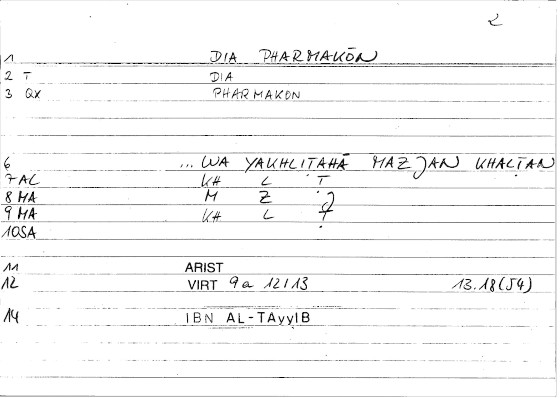 2
1 DIA PHARMAKŌN
2 T DIA
3 QX PHARMAKON
6 ... WA YAKHLITAHĀ MAZJAN KHALṬAN
7 AL KH L Ṭ
8 MA M Z J
9 MA KH L Ṭ
10 SA
11 ARIST
12 VIRT 9a 12/13 13.18(54)
14 IBN AL-TAyyIB